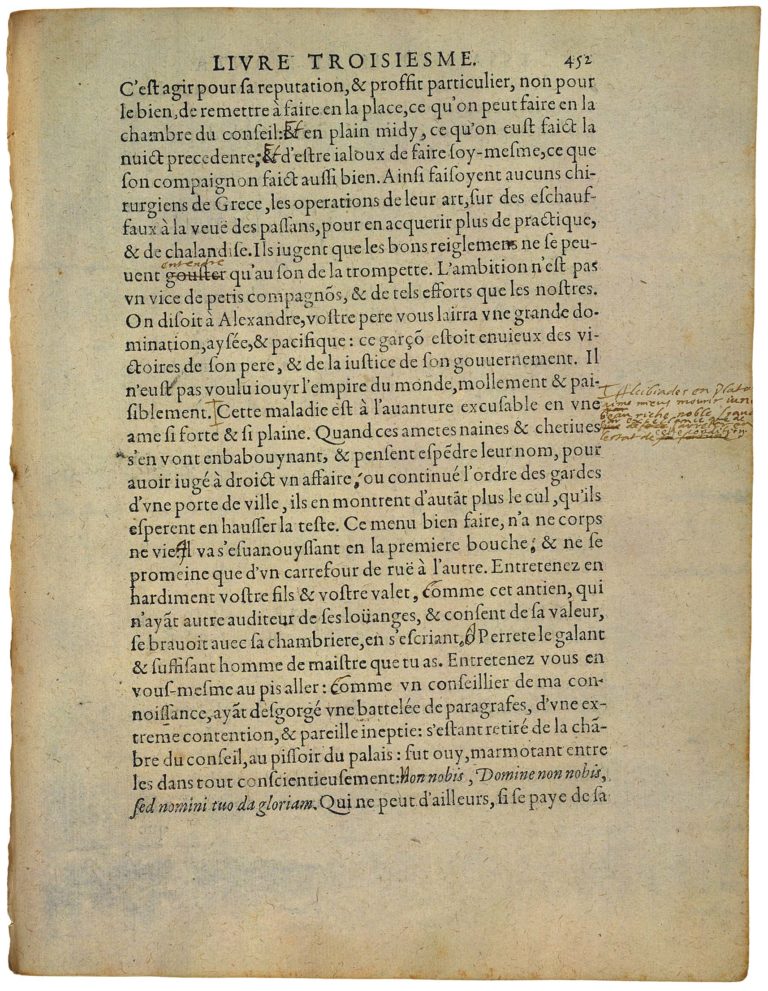 LIVRE TROISIESME. 452
C'est agir pour sa reputation, & proffit particulier, non pour
le bien, de remettre à faire en la place, ce qu'on peut faire en la
chambre du conseil: & en plain midy, ce qu'on eust faict la
nuict precedente; & d'estre ialoux de faire soy-mesme, ce que
son compaignon faict aussi bien. Ainsi faisoyent aucuns chi-
rurgiens de Grece, les operations de leur art, sur des eschauf-
faux à la veuë des passans, pour en acquerir plus de practique,
& de chalandise. Ils iugent que les bons reiglemens ne se peu-
entendre
uent gouster qu'au son de la trompette. L'ambition n'est pas
vn vice de petis compagnõs, & de tels efforts que les nostres.
On disoit à Alexandre, vostre pere vous lairra vne grande do-
mination, aysée, & pacifique: ce garçõ estoit enuieux des vi-
ctoires de son pere, & de la iustice de son gouuernement. Il
n'eust pas voulu iouyr l'empire du monde, mollement & pai-
siblement. Cette maladie est à l'auanture excusable en vne
Alcibiades en Plato
aime mieus mourir iune
beau riche noble
ame si forte & si plaine. Quand ces ametes naines & chetiues
s'en vont enbabouynant, & pensent espẽdre leur nom, pour
auoir iugé à droict vn affaire, ou continué l'ordre des gardes
d'vne porte de ville, ils en montrent d'autãt plus le cul, qu'ils
esperent en hausser la teste. Ce menu bien faire, n'a ne corps
ne vie Il va s'esuanouyssant en la premiere bouche; & ne se
promeine que d'vn carrefour de ruë à l'autre. Entretenez en
hardiment vostre fils & vostre valet, Comme cet antien, qui
n'ayãt autre auditeur de ses loüanges, & consent de sa valeur,
se brauoit auec sa chambriere, en s'escriant, O Perrete le galant
& suffisant homme de maistre que tu as. Entretenez vous en
vous-mesme au pis aller: Comme vn conseillier de ma con-
noissance, ayãt desgorgé vne battelée de paragrafes, d'vne ex-
treme contention, & pareille ineptie: s'estant retiré de la chã-
bre du conseil, au pissoir du palais: fut ouy, marmotant entre
les dans tout conscientieusement: Non nobis, Domine non nobis,
sed nomini tuo da gloriam. Qui ne peut d'ailleurs, si se paye de sa